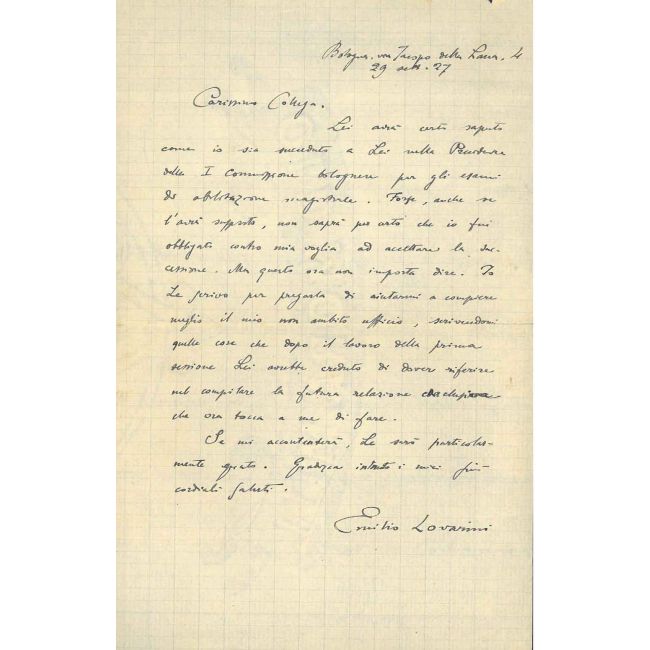 Bologna, via Jacopo della Lana, 4
29 sett. 27
Carissimo Collega,
Lei avrà certo saputo
come io sia succeduto a Lei nella Presidenza
della I Commissione bolognese per gli esami
di abilitazione magistrale. Forse, anche se
l'avrà supposto, non saprà per certo che io fui
obbligato contro mia voglia ad accettare la suc-
cessione. Ma questo ora non importa dire. Io
Le scrivo per pregarla di aiutarmi a compiere
meglio il mio non ambito ufficio, scrivendomi
quelle cose che dopo il lavoro della prima
sessione Lei avrebbe creduto di dover riferire
nel compilare la futura relazione
che ora tocca a me di fare.
Se mi accontenterà, Le sarò particolar-
mente grato. Gradisca intanto i miei più
cordiali saluti.
Emilio Lovarini